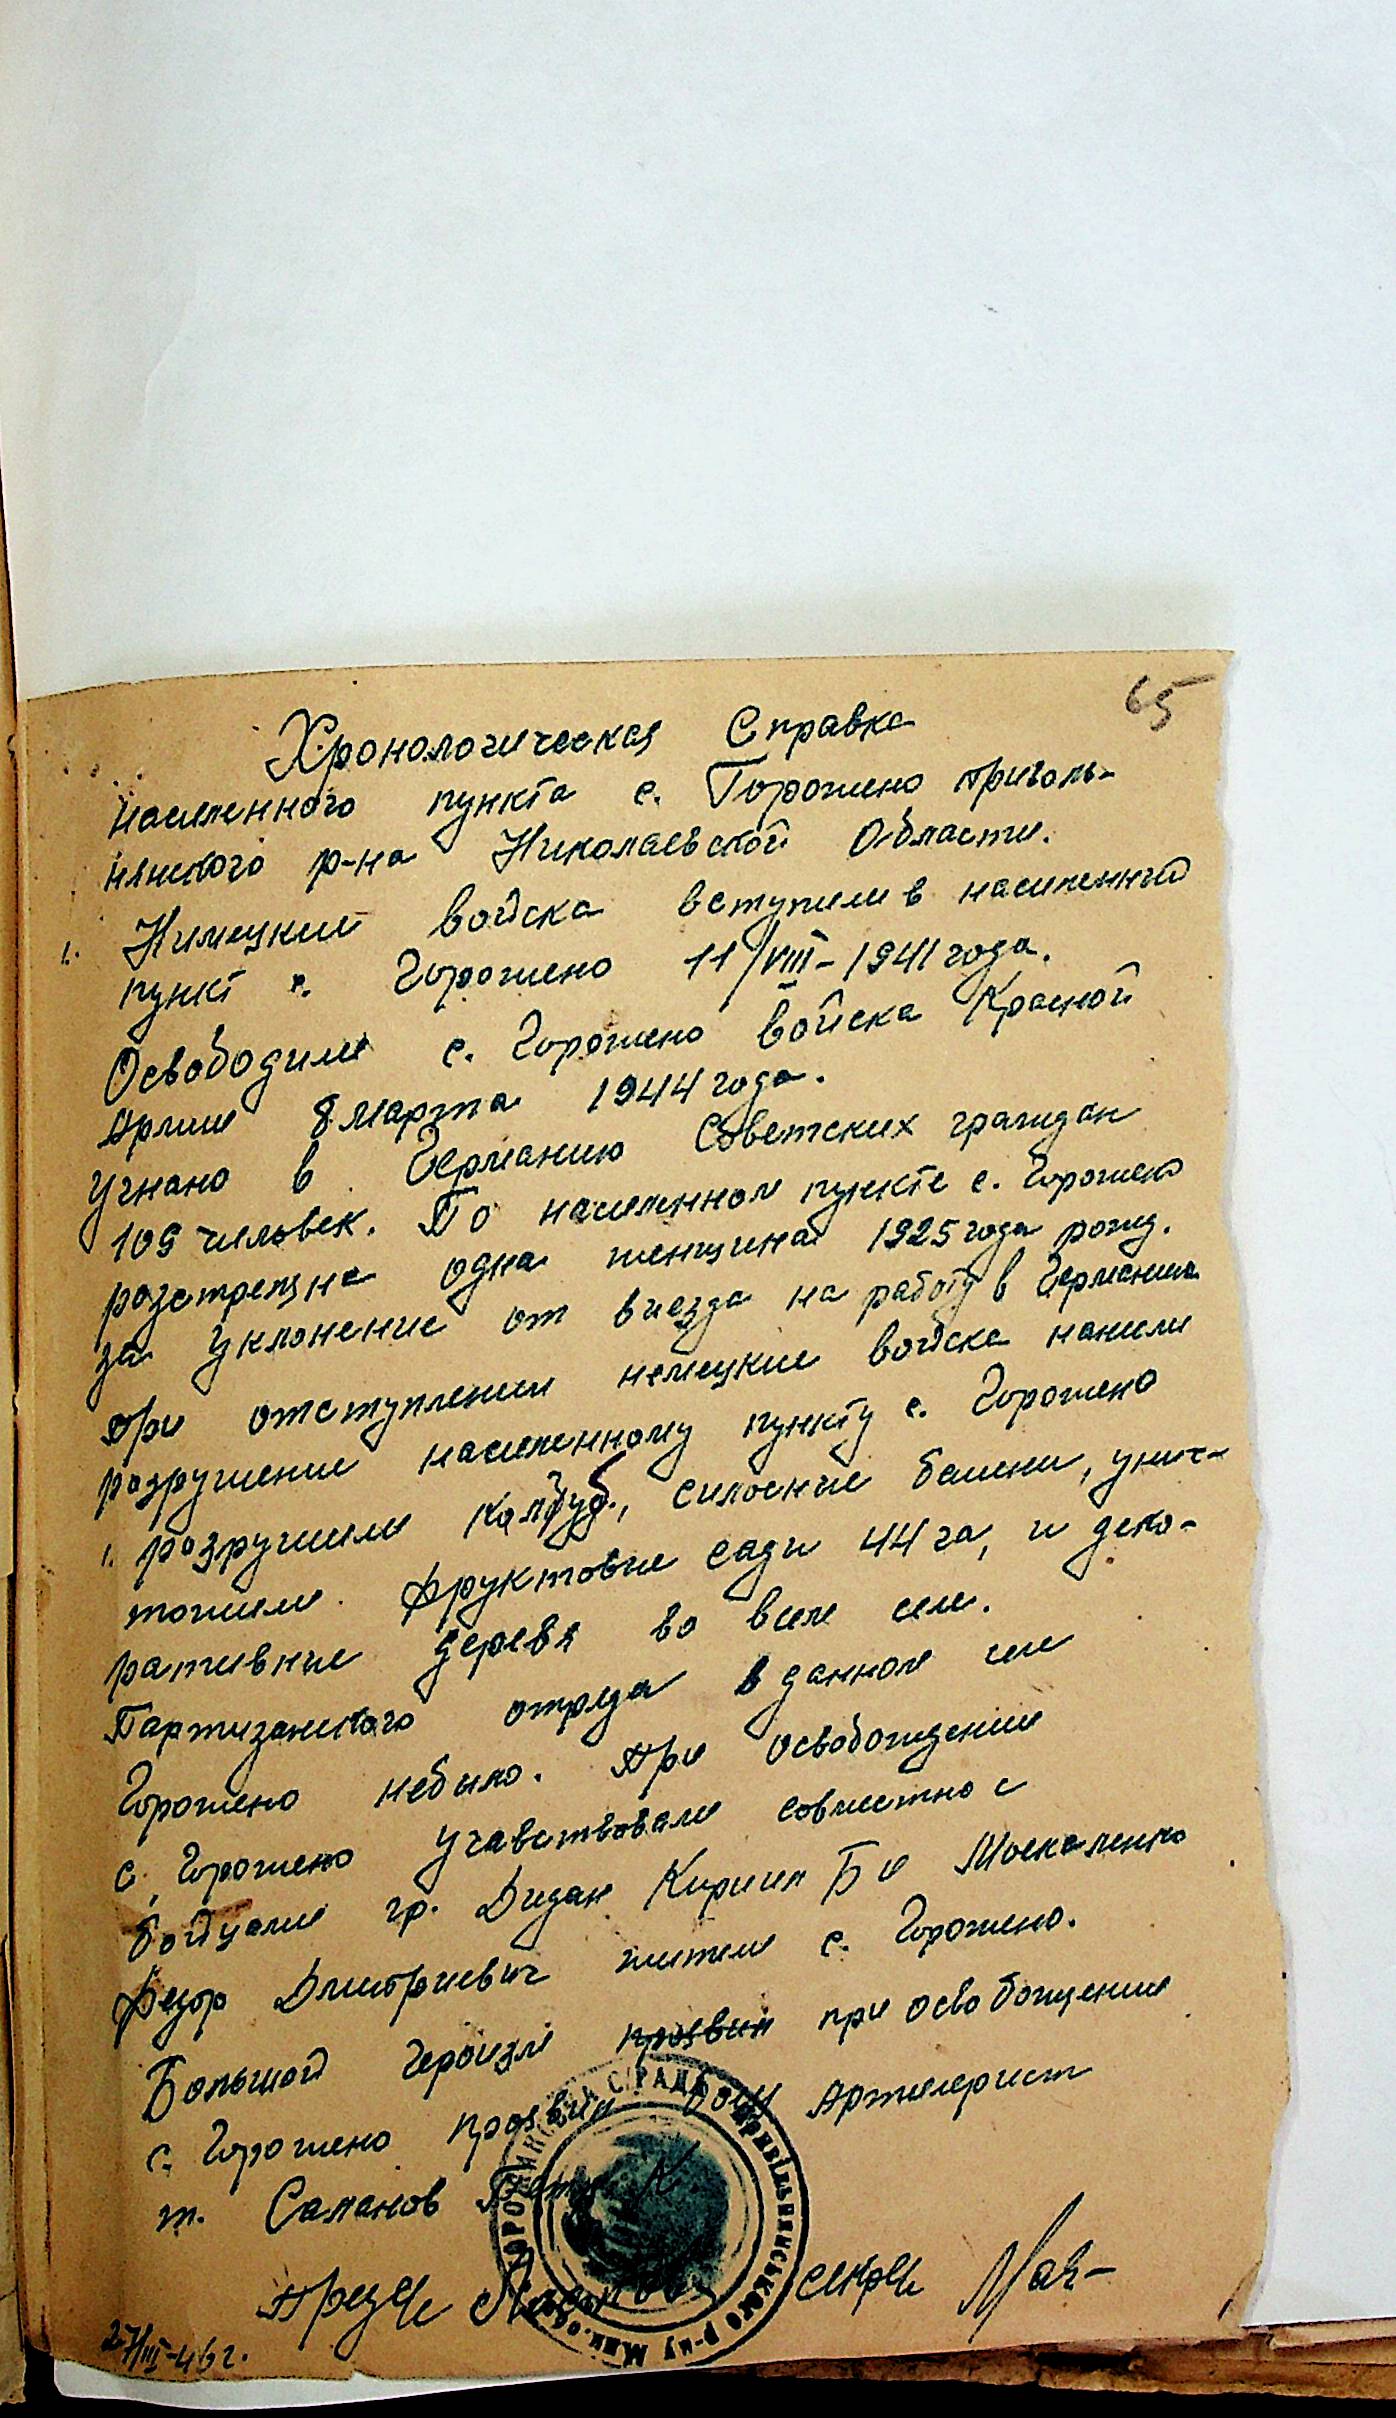 65
Хронологическая Справка
населенного пункта с. Горожено Приволь-
нянского р-на Николаевской Области.
1. Нимецкии войска вступили в населенный
пункт с. Горожено 11/VIII-1941 года.
Освободили с. Горожено войска Красной
Армии 8 марта 1944 года.
Угнано в Германию Советских граждан
109 человек. По населенном пункте с. Горожено
розстреляна одна женщина 1925 года рожд.
за уклонение от виезда на работу в Германию
При отступлении немецкие войска нанели
розрушение населенному пункту с. Горожено
1. розрушили силосние башни, унич-
тожили фруктовие сади 44 га, и деко-
ративние деревя во всем селе.
Партизанского отряда в данном селе
Горожено небыло. При Освобождении
с. Горожено учавствовали совместно с
бойцами гр. Дидан Кирилл и Москаленко
Федор Дмитриевич жители с. Горожено.
Большой героизм проявил при освобождении
с. Горожено проявил боец Артилерист
т. Саланов
Предс/с секр с/с
27/III-46 г.
С/РАДА Привільнянського р-ну Мик. обл.